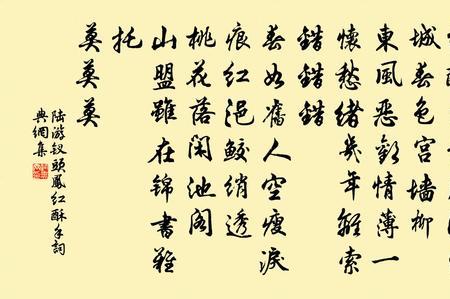 城春色宮墙柳
東風惡歡情薄一
懷愁緒幾年離索
錯錯錯
春如舊人空瘦淚
痕紅浥鮫綃透
桃花落閑池阁
山盟雖在錦書難
托
莫莫莫
陸游钗頭鳳紅酥手詞
典網集